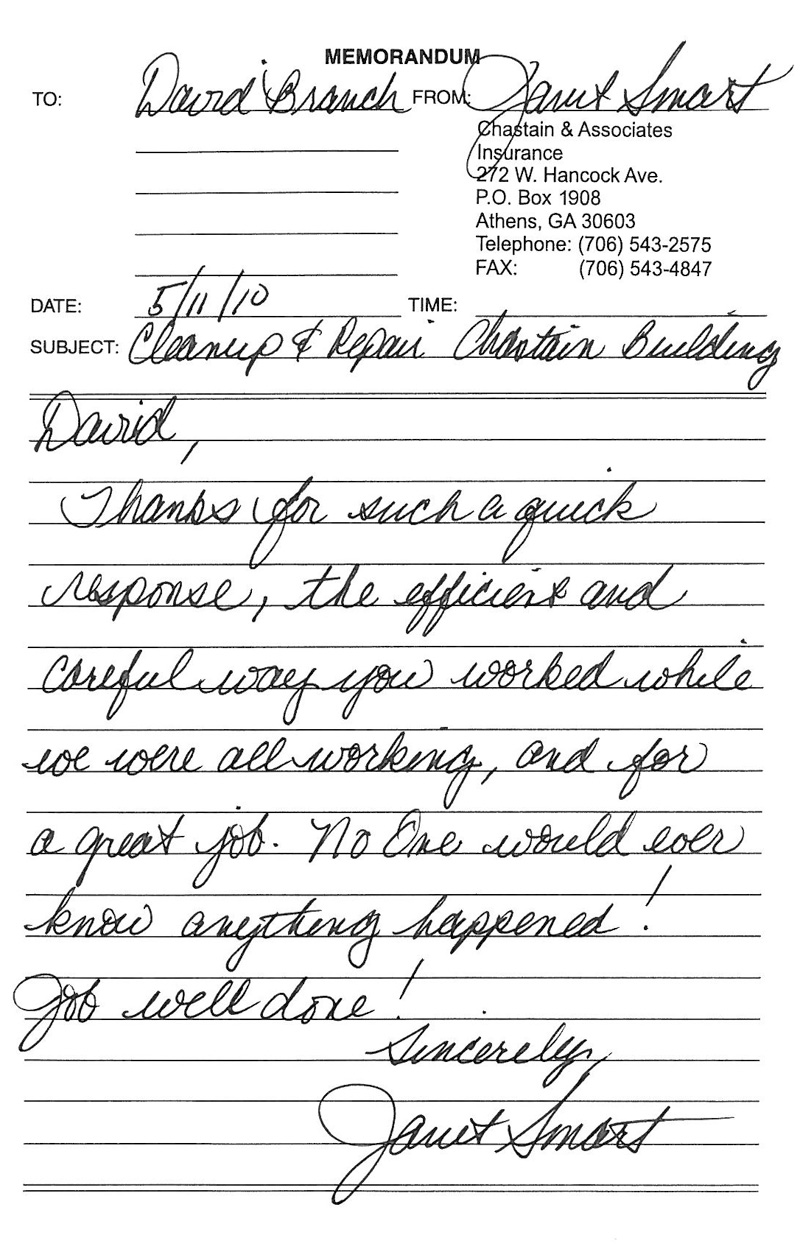 MEMORANDUM
TO: David Branch FROM: Janet Smart
Chastain & Associates
Insurance
272 W. Hancock Ave.
P.O. Box 1908
Athens, GA 30603
Telephone: (706) 543-2575
FAX: (706) 543-4847
DATE: 5/11/10 TIME:
SUBJECT: Cleanup & Repair Chastain Building
David,
Thanks for such a quick
response, the efficient and
careful way you worked while
we were all working, and for
a great job. No One would ever
know anything happened!
Job well done!
Sincerely,
Janet Smart